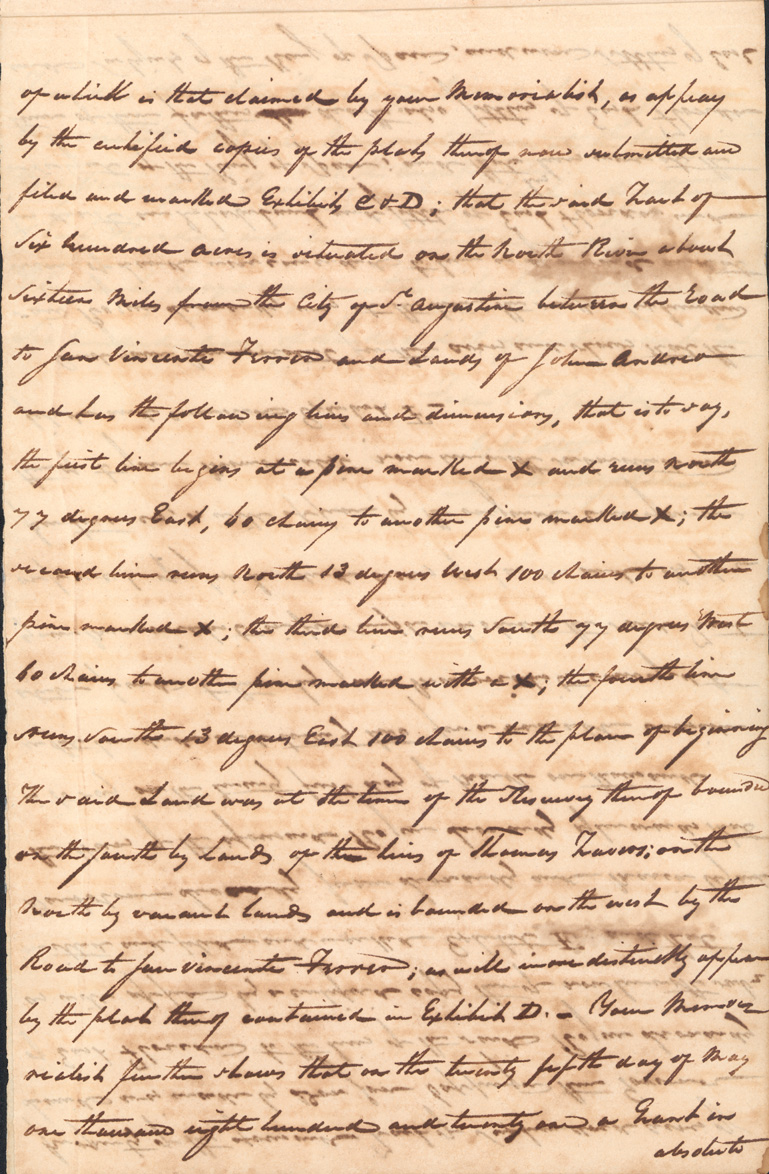 of which is that claimed by your Memorialist, as appears
by the certified copies of the plats thereof now submitted and
filed and marked Exhibits C & D; that the said Tract of
Six hundred acres is situated on the North River about
Sixteen Miles from the City of St Augustine between the Road
to San Vincente Ferrer and Lands of John Andrew
and has the following lines and dimensions, that is to say,
the first line begins at a pine marked X and runs North
77 degrees East, 60 chains to another pine marked X; the
second line runs North 13 degrees West 100 chains to another
pine marked X; the third line runs South 77 degrees West
60 chains to another pine marked with a X; the fourth line
runs South 13 degrees East 100 chains to the place of beginning
The said Land was at the time of the Resurvey thereof bounded
on the South by Lands of the heirs of Thomas Travers; on the
North by vacant lands and is bounded on the west by the
Road to San Vincente Ferrer; as will more distinctly appear
by the plat thereof contained in Exhibit D. – Your Memo-
rialist further shows that on the twenty fifth day of May
one thousand eight hundred and twenty one a Grant in
absolute